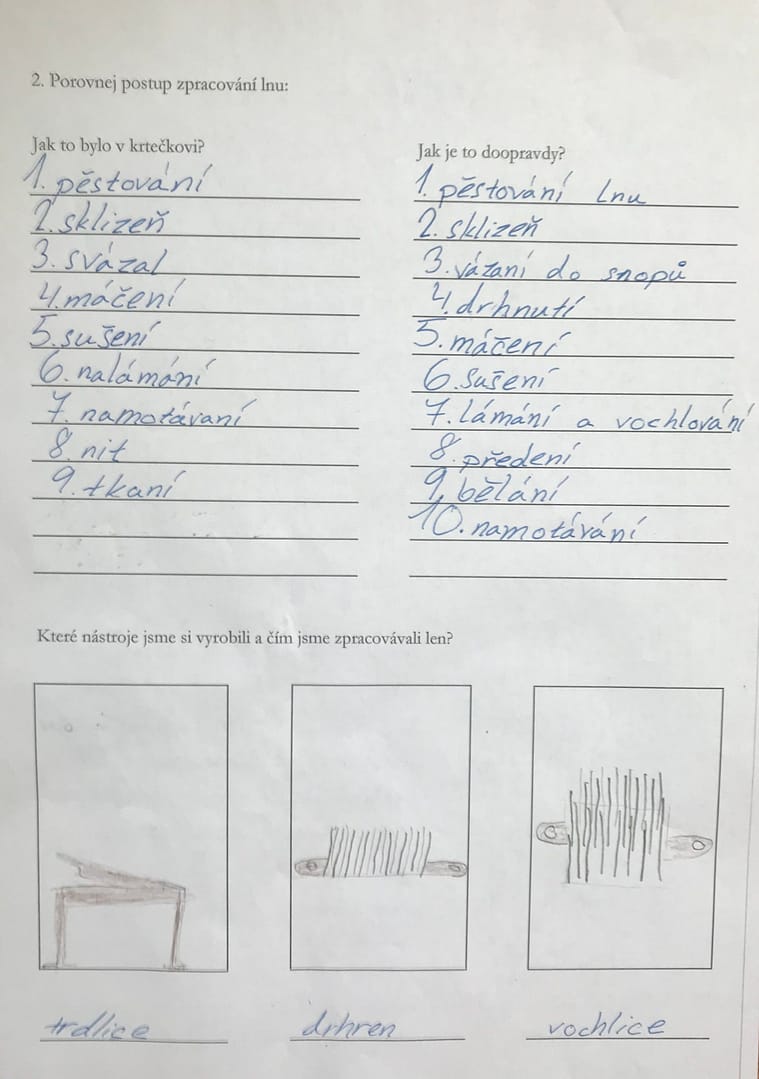 2. Porovnej postup zpracování lnu:
Jak to bylo v krtečkovi?
1. pěstování
2. sklizeň
3. svázal
4. máčení
5. sušení
6. nalámání
7. namotávaní
8. nit
9. tkaní
Jak je to doopravdy?
1. pěstování lnu
2. sklizeň
3. vázaní do snopů
4. drhnutí
5. máčení
6. sušení
7. lámání a vochlování
8. předení
9. bělání
10. namotávání
Které nástroje jsme si vyrobili a čím jsme zpracovávali len?
trdlice
drhren
vochlice